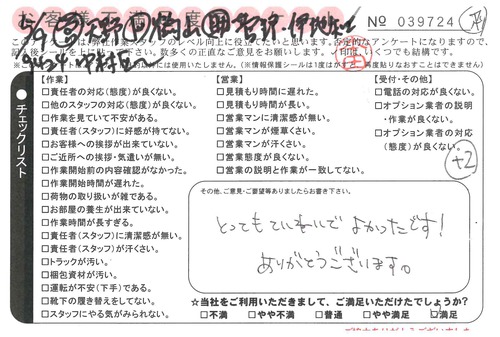 No 039724
記入後シールを貼ってください。否定的なアンケートになりますが、
数多くの正直なご意見をお願いします。
いくつでも結構です。
チェックリスト
【作業】
□責任者の対応(態度)が良くない。
□他のスタッフの対応(態度)が良くない。
□作業を見ていて不安がある。
□責任者(スタッフ)に好感が持てない。
□お客様への挨拶が出来ていない。
□ご近所への挨拶・気遣いが無い。
□作業開始前の内容確認がなかった。
□作業開始時間が遅れた。
□荷物の取り扱いが雑である。
□お部屋の養生が出来ていない。
□作業時間が長すぎる。
□責任者(スタッフ)に清潔感が無い。
□責任者(スタッフ)が汗くさい。
□トラックが汚い。
□梱包資材が汚い。
□運転が不安(下手)である。
□靴下の履き替えをしてない。
□スタッフにやる気がみられない。
【営業】
□見積もり時間に遅れた。
□見積もり時間が長い。
□営業マンに清潔感が無い。
□営業マンが煙草くさい。
□営業マンが汗くさい。
□営業態度が良くない。
□営業の説明と作業が一致してない。
【受付・その他】
□電話の対応が良くない。
□オプション業者の説明
・作業が良くない。
□オプション業者の対応
(態度)が良くない。
+2
その他、ご意見・ご要望等ありましたらお書き下さい。
とってもていねいで よかったです!
ありがとうございます。
☆当社をご利用いただきまして、ご満足いただけたでしょうか?
□不満 □やや不満 □普通 □やや満足 □満足